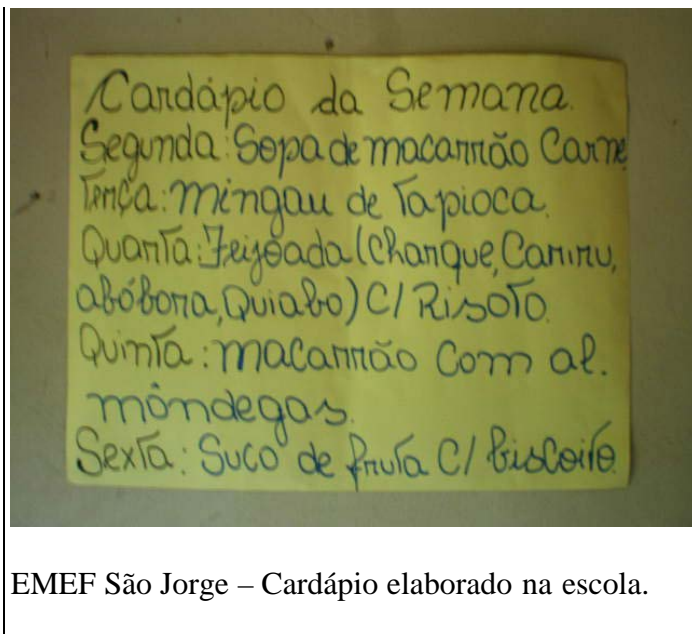 Cardápio da Semana.
Segunda: Sopa de macarrão Carne
Terça: Mingau de Tapioca.
Quarta: Feijoada (Charque, Cariru,
abóbora, Quiabo) C/ Risoto.
Quinta: Macarrão Com al.
môndegas.
Sexta: Suco de fruta C/ biscoito.
EMEF São Jorge – Cardápio elaborado na escola.